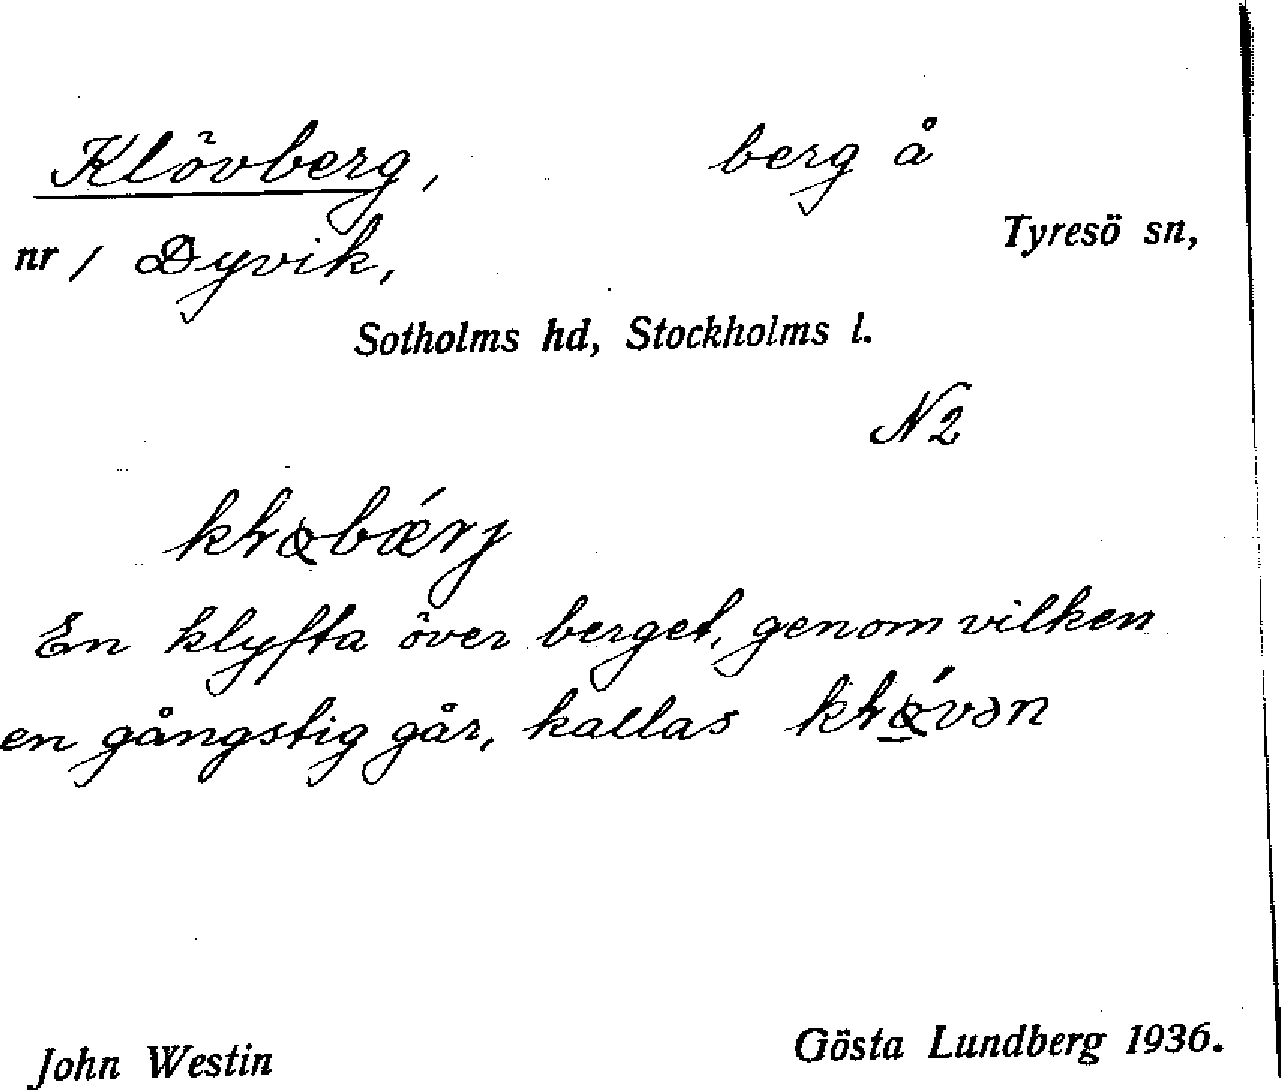 Klövberg, berg å
Tyresö sn,
nr 1 Dyvik,
Sotholms hd, Stockholms l.
N2
En klyfta över berget, genom vilken
en gångstig går, kallas
John Westin Gösta Lundberg 1936.